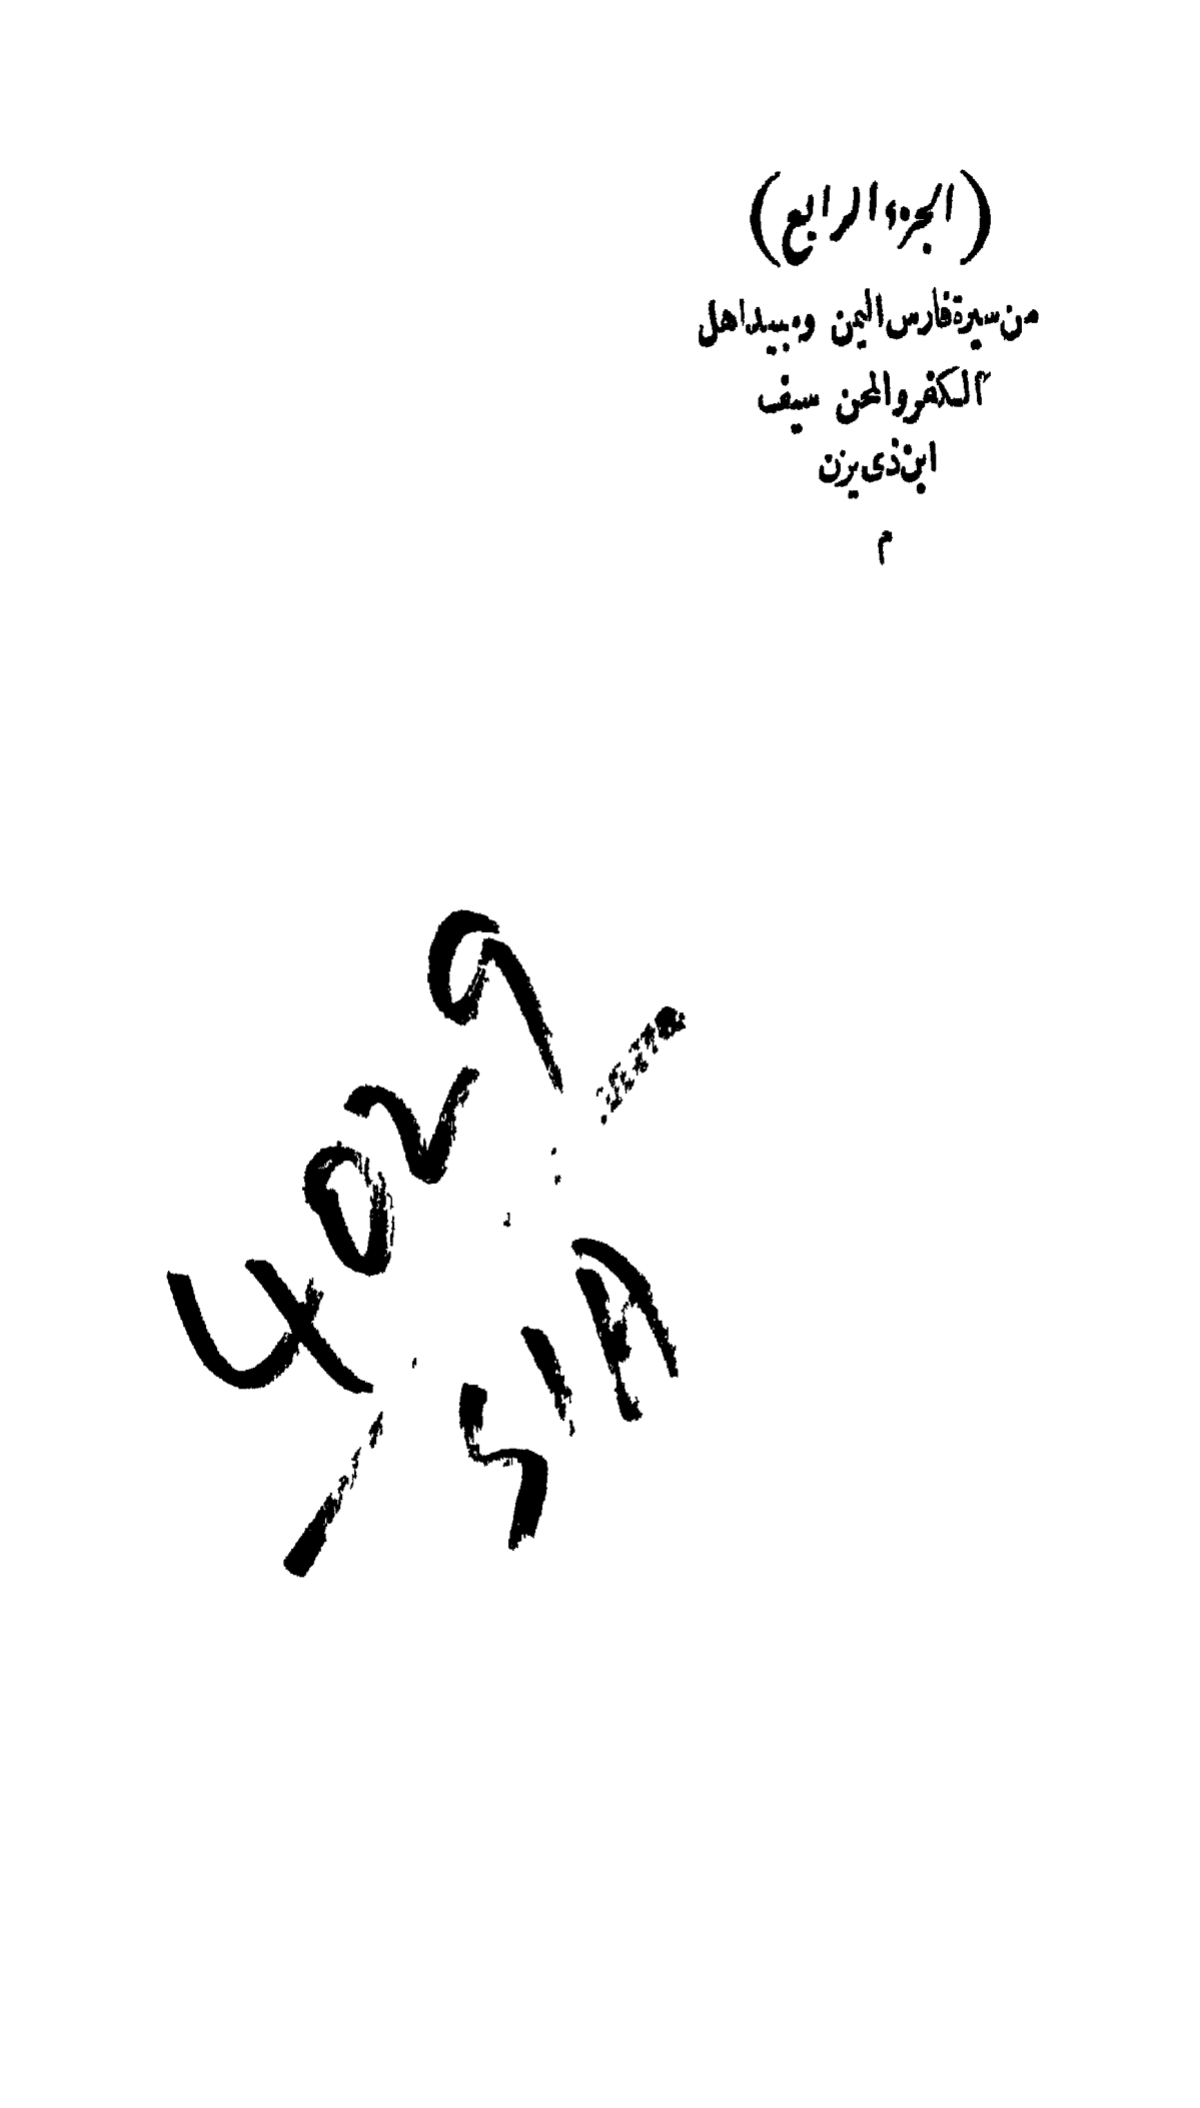 (الجزء الرابع)
من سيرة فارس اليمن ومبيد اهل
الكفر والمحن سيف
ابن ذى يزن
م
4029
SIA